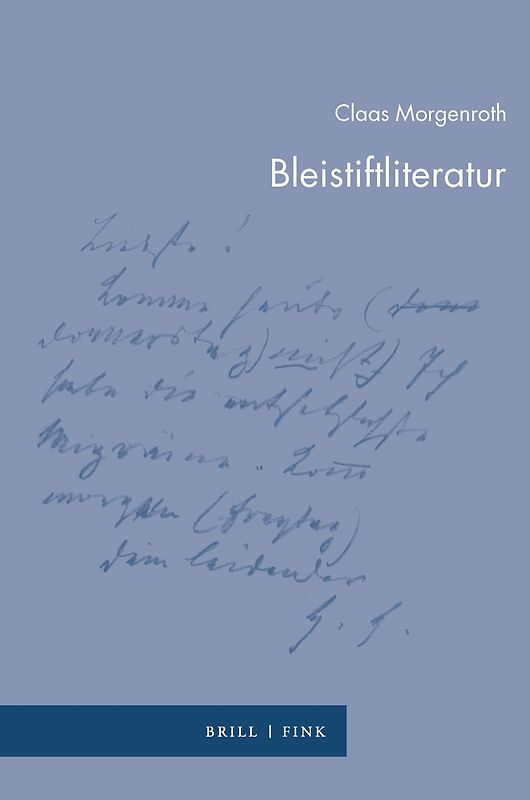 Claas Morgenroth
Bleistiftliteratur
Liebste!
Komme heute (
donnerstag) nicht) Ich
habe die entsetzlichste
Migräne. Kom̄
morgen (freytag)
dein leidender
BRILL | FINK